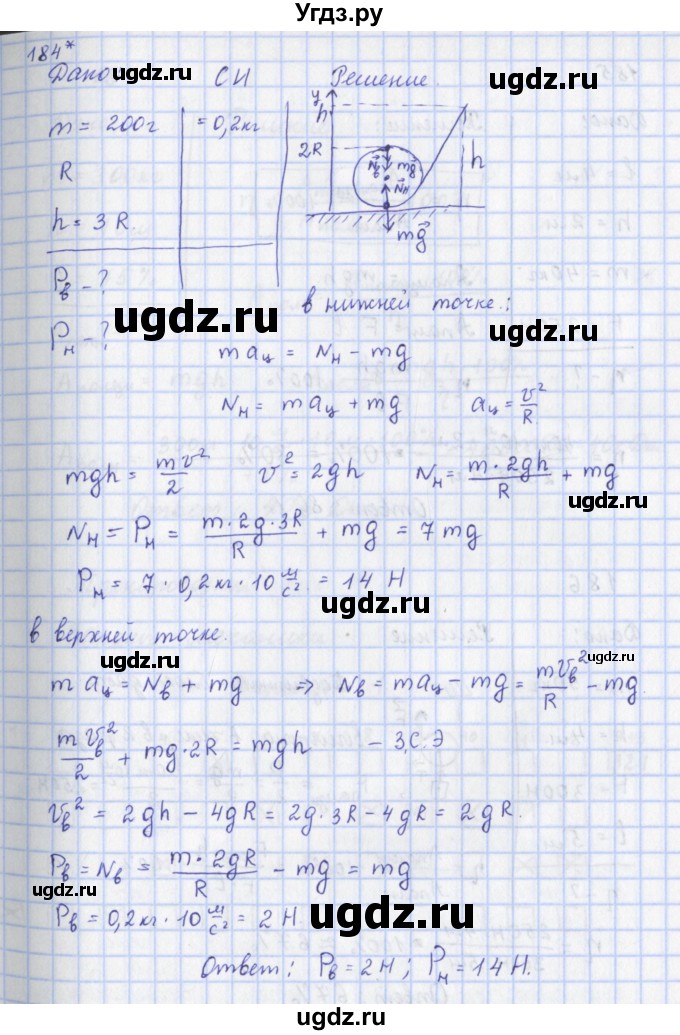 Угдз.ру
184*
Дано СИ Решение.
ugdz.ru ugdz.ru
m = 200г = 0,2кг
R
h = 3R.
y h 2R N⃗в mg⃗ N⃗н h
mg⃗
Pв - ?
Pн - ?
ugdz.ru ugdz.ru
в нижней точке.:
m aц = Nн - mg
Nн = m aц + mg aц = v²/R
mgh = mv²/2 v² = 2gh Nн = m·2gh/R + mg
ugdz.ru
Nн = Pн = m·2g·3R/R + mg = 7mg
Pн = 7·0,2кг·10 м/с² = 14 Н
ugdz.ru
в верхней точке.
ugdz.ru ugdz.ru
m aц = Nв + mg ⇒ Nв = maц - mg = mvв²/R - mg.
mvв²/2 + mg·2R = mgh - З.С.Э
ugdz.ru
vв² = 2gh - 4gR = 2g·3R - 4gR = 2gR.
Pв = Nв = m·2gR/R - mg = mg
ugdz.ru
Pв = 0,2кг·10 м/с² = 2 Н
ugdz.ru
Ответ: Pв = 2Н; Pн = 14Н.
ugdz.ru ugdz.ru